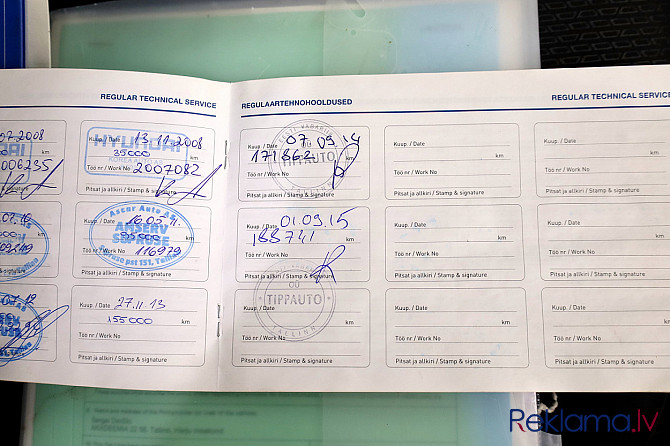 REGULAR TECHNICAL SERVICE
REGULAARTEHNOHOOLDUSED
REGULAR TECHNICAL SERVICE
07.2008
006235
& signature
Kuup. / Date 13.11.2008
HYUNDAI
35000 km
Töö nr / Work No 2007082
Pitsat ja allkiri / Stamp & signature
Kuup. / Date 07.09.14
171862 km
TIPPAUTO
Töö nr / Work No
Pitsat ja allkiri / Stamp & signature
Kuup. / Date
km
Töö nr / Work No
Pitsat ja allkiri / Stamp & signature
Kuup. / Date
km
Töö nr / Work No
Pitsat ja allkiri / Stamp & signature
& signature
Kuup. / Date
AMSERV
km
Töö nr / Work No 116979
Pitsat ja allkiri / Stamp & signature
Kuup. / Date 01.09.15
188741 km
Töö nr / Work No
Pitsat ja allkiri / Stamp & signature
OÜ
TIPPAUTO
TALLINN
Kuup. / Date
km
Töö nr / Work No
Pitsat ja allkiri / Stamp & signature
Kuup. / Date
km
Töö nr / Work No
Pitsat ja allkiri / Stamp & signature
Kuup. / Date 27.11.13
155000 km
Töö nr / Work No
Pitsat ja allkiri / Stamp & signature
Kuup. / Date
km
Töö nr / Work No
Pitsat ja allkiri / Stamp & signature
Kuup. / Date
km
Töö nr / Work No
Pitsat ja allkiri / Stamp & signature
Kuup. / Date
km
Töö nr / Work No
Pitsat ja allkiri / Stamp & signature
Reklama.lv